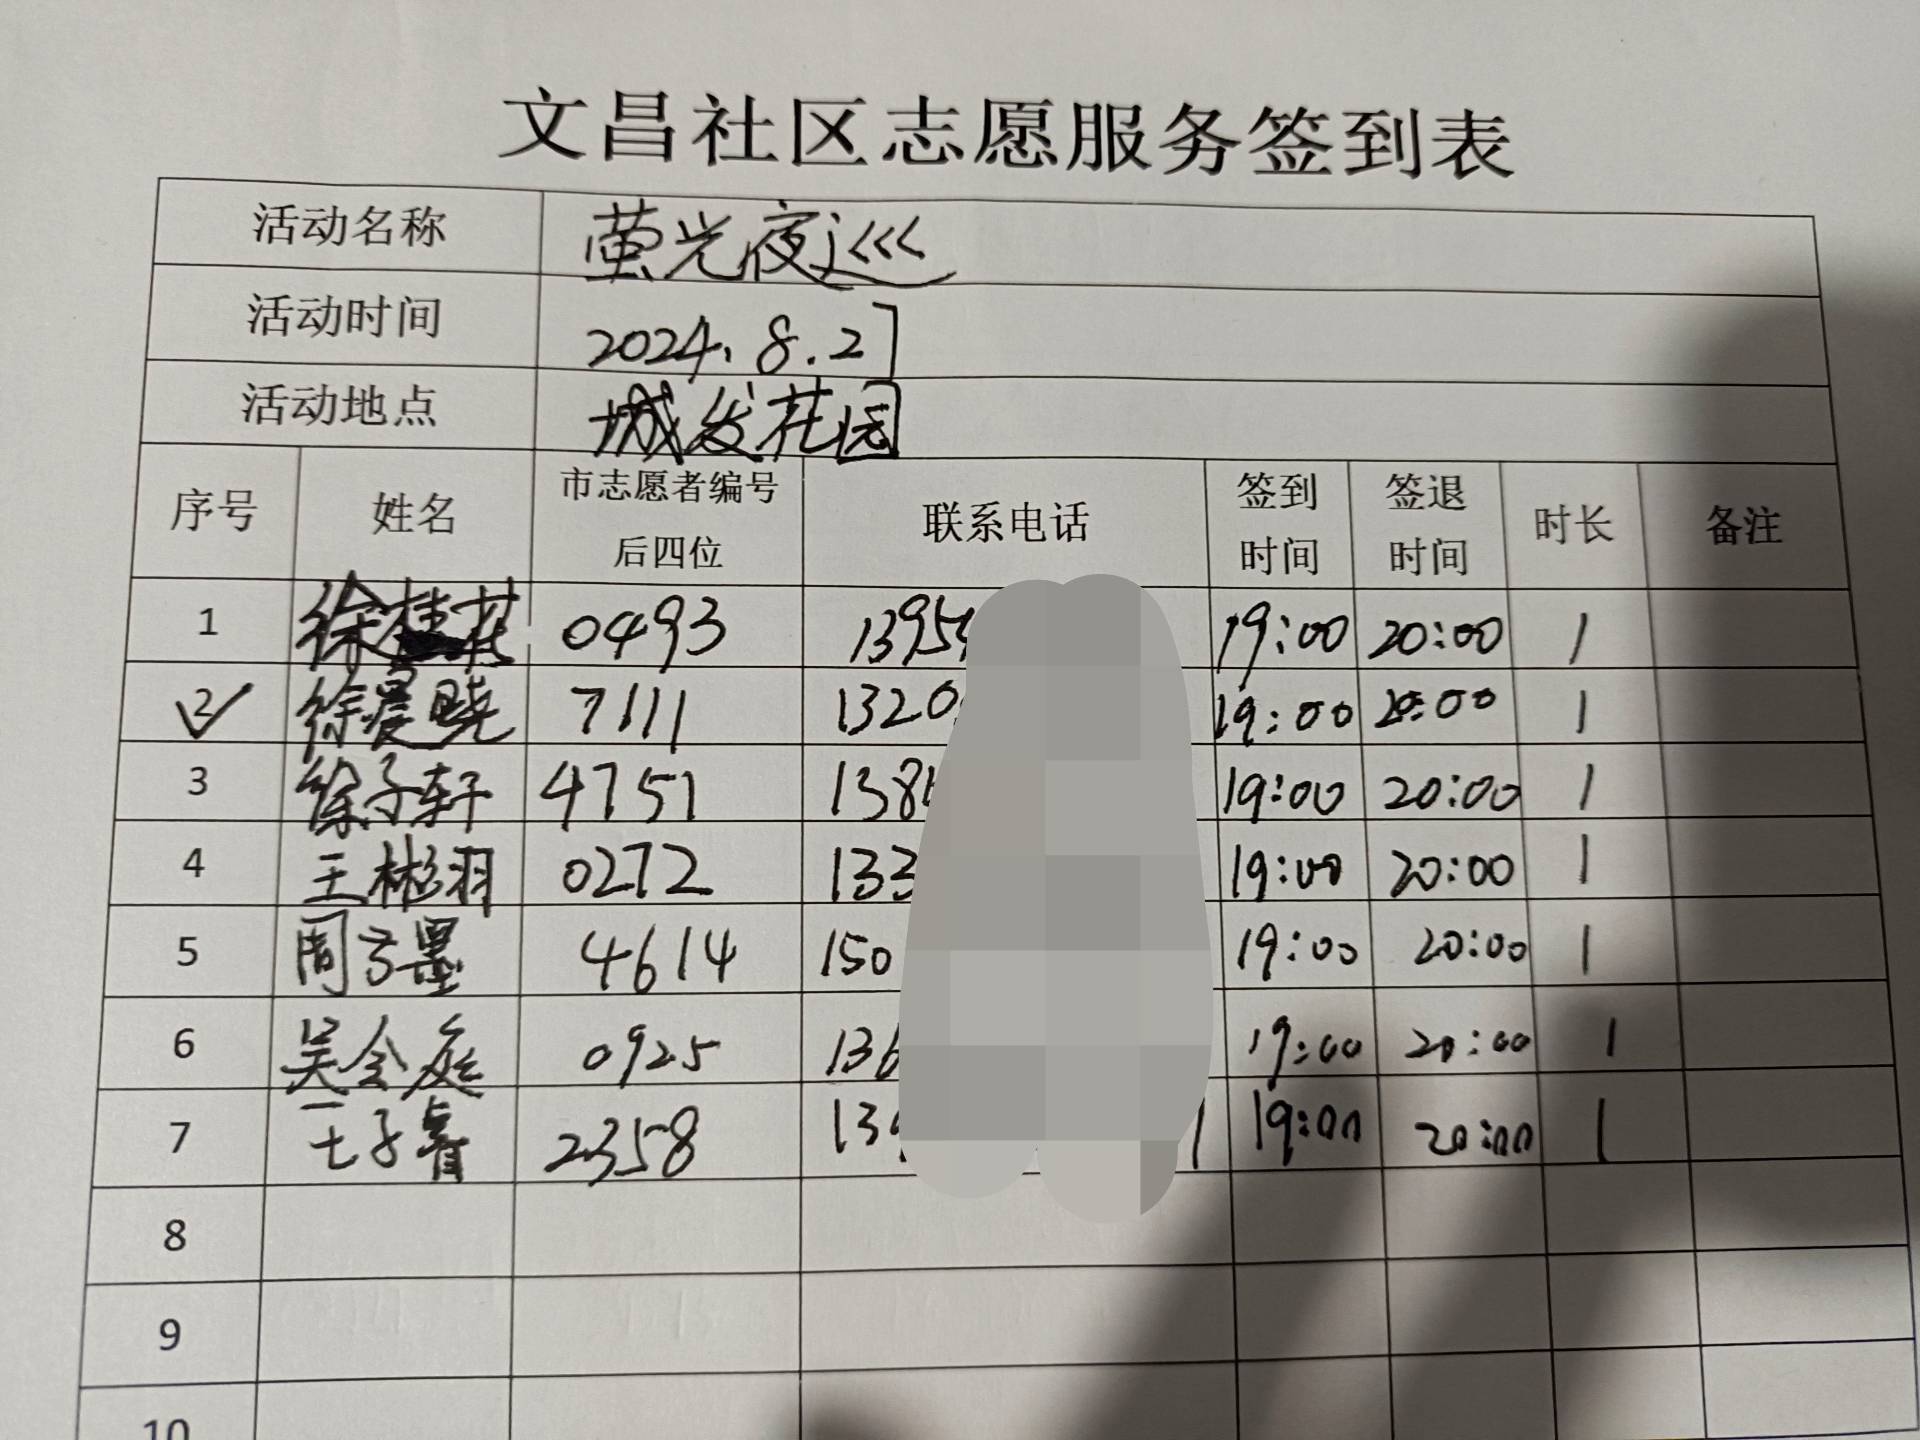 文昌社区志愿服务签到表
活动名称 萤光夜巡
活动时间 2024.8.27
活动地点 城发花园
序号 姓名 市志愿者编号后四位 联系电话 签到时间 签退时间 时长 备注
1 徐桂花 0493 1395 19:00 20:00 1
2 徐晨晓 7111 1320 19:00 20:00 1
3 徐子轩 4751 138 19:00 20:00 1
4 王彬羽 0272 133 19:00 20:00 1
5 周子墨 4614 150 19:00 20:00 1
6 吴令庭 0925 136 19:00 20:00 1
7 王子睿 2358 139 1 19:00 20:00 1
8
9
10